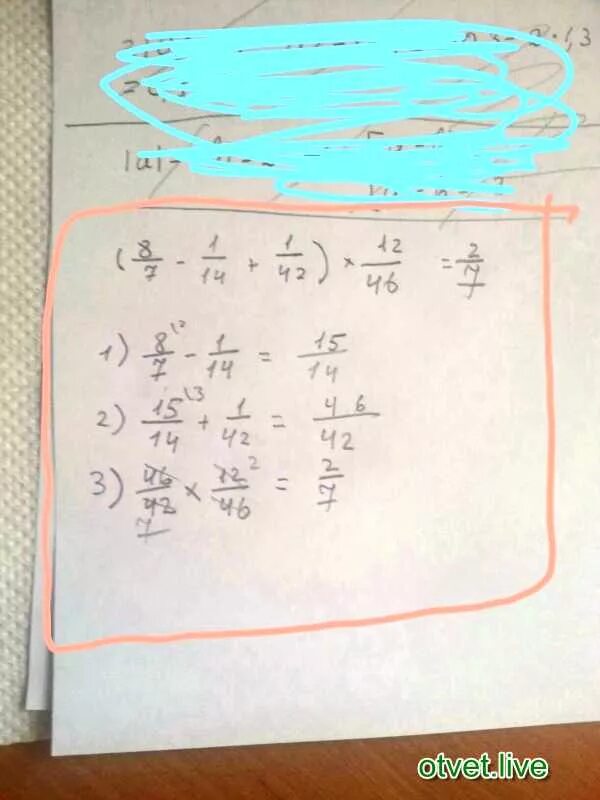 (8/7 - 1/14 + 1/42) × 12/46 = 2/7
1) 8/7 \2 - 1/14 = 15/14
2) 15/14 \3 + 1/42 = 46/42
3) 46/42 7 × 12/46 2 = 2/7
otvet.live